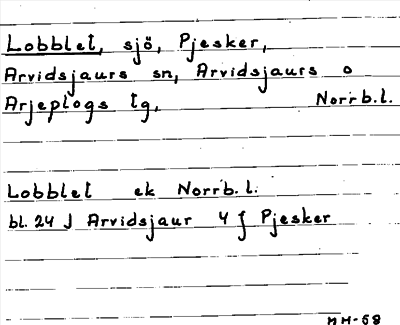 Lobblet, sjö, Pjesker,
Arvidsjaurs sn, Arvidsjaurs o
Arjeplogs tg, Norrb.l.
Lobblet ek Norrb. l.
bl. 24 J Arvidsjaur 4 f Pjesker
MH-68